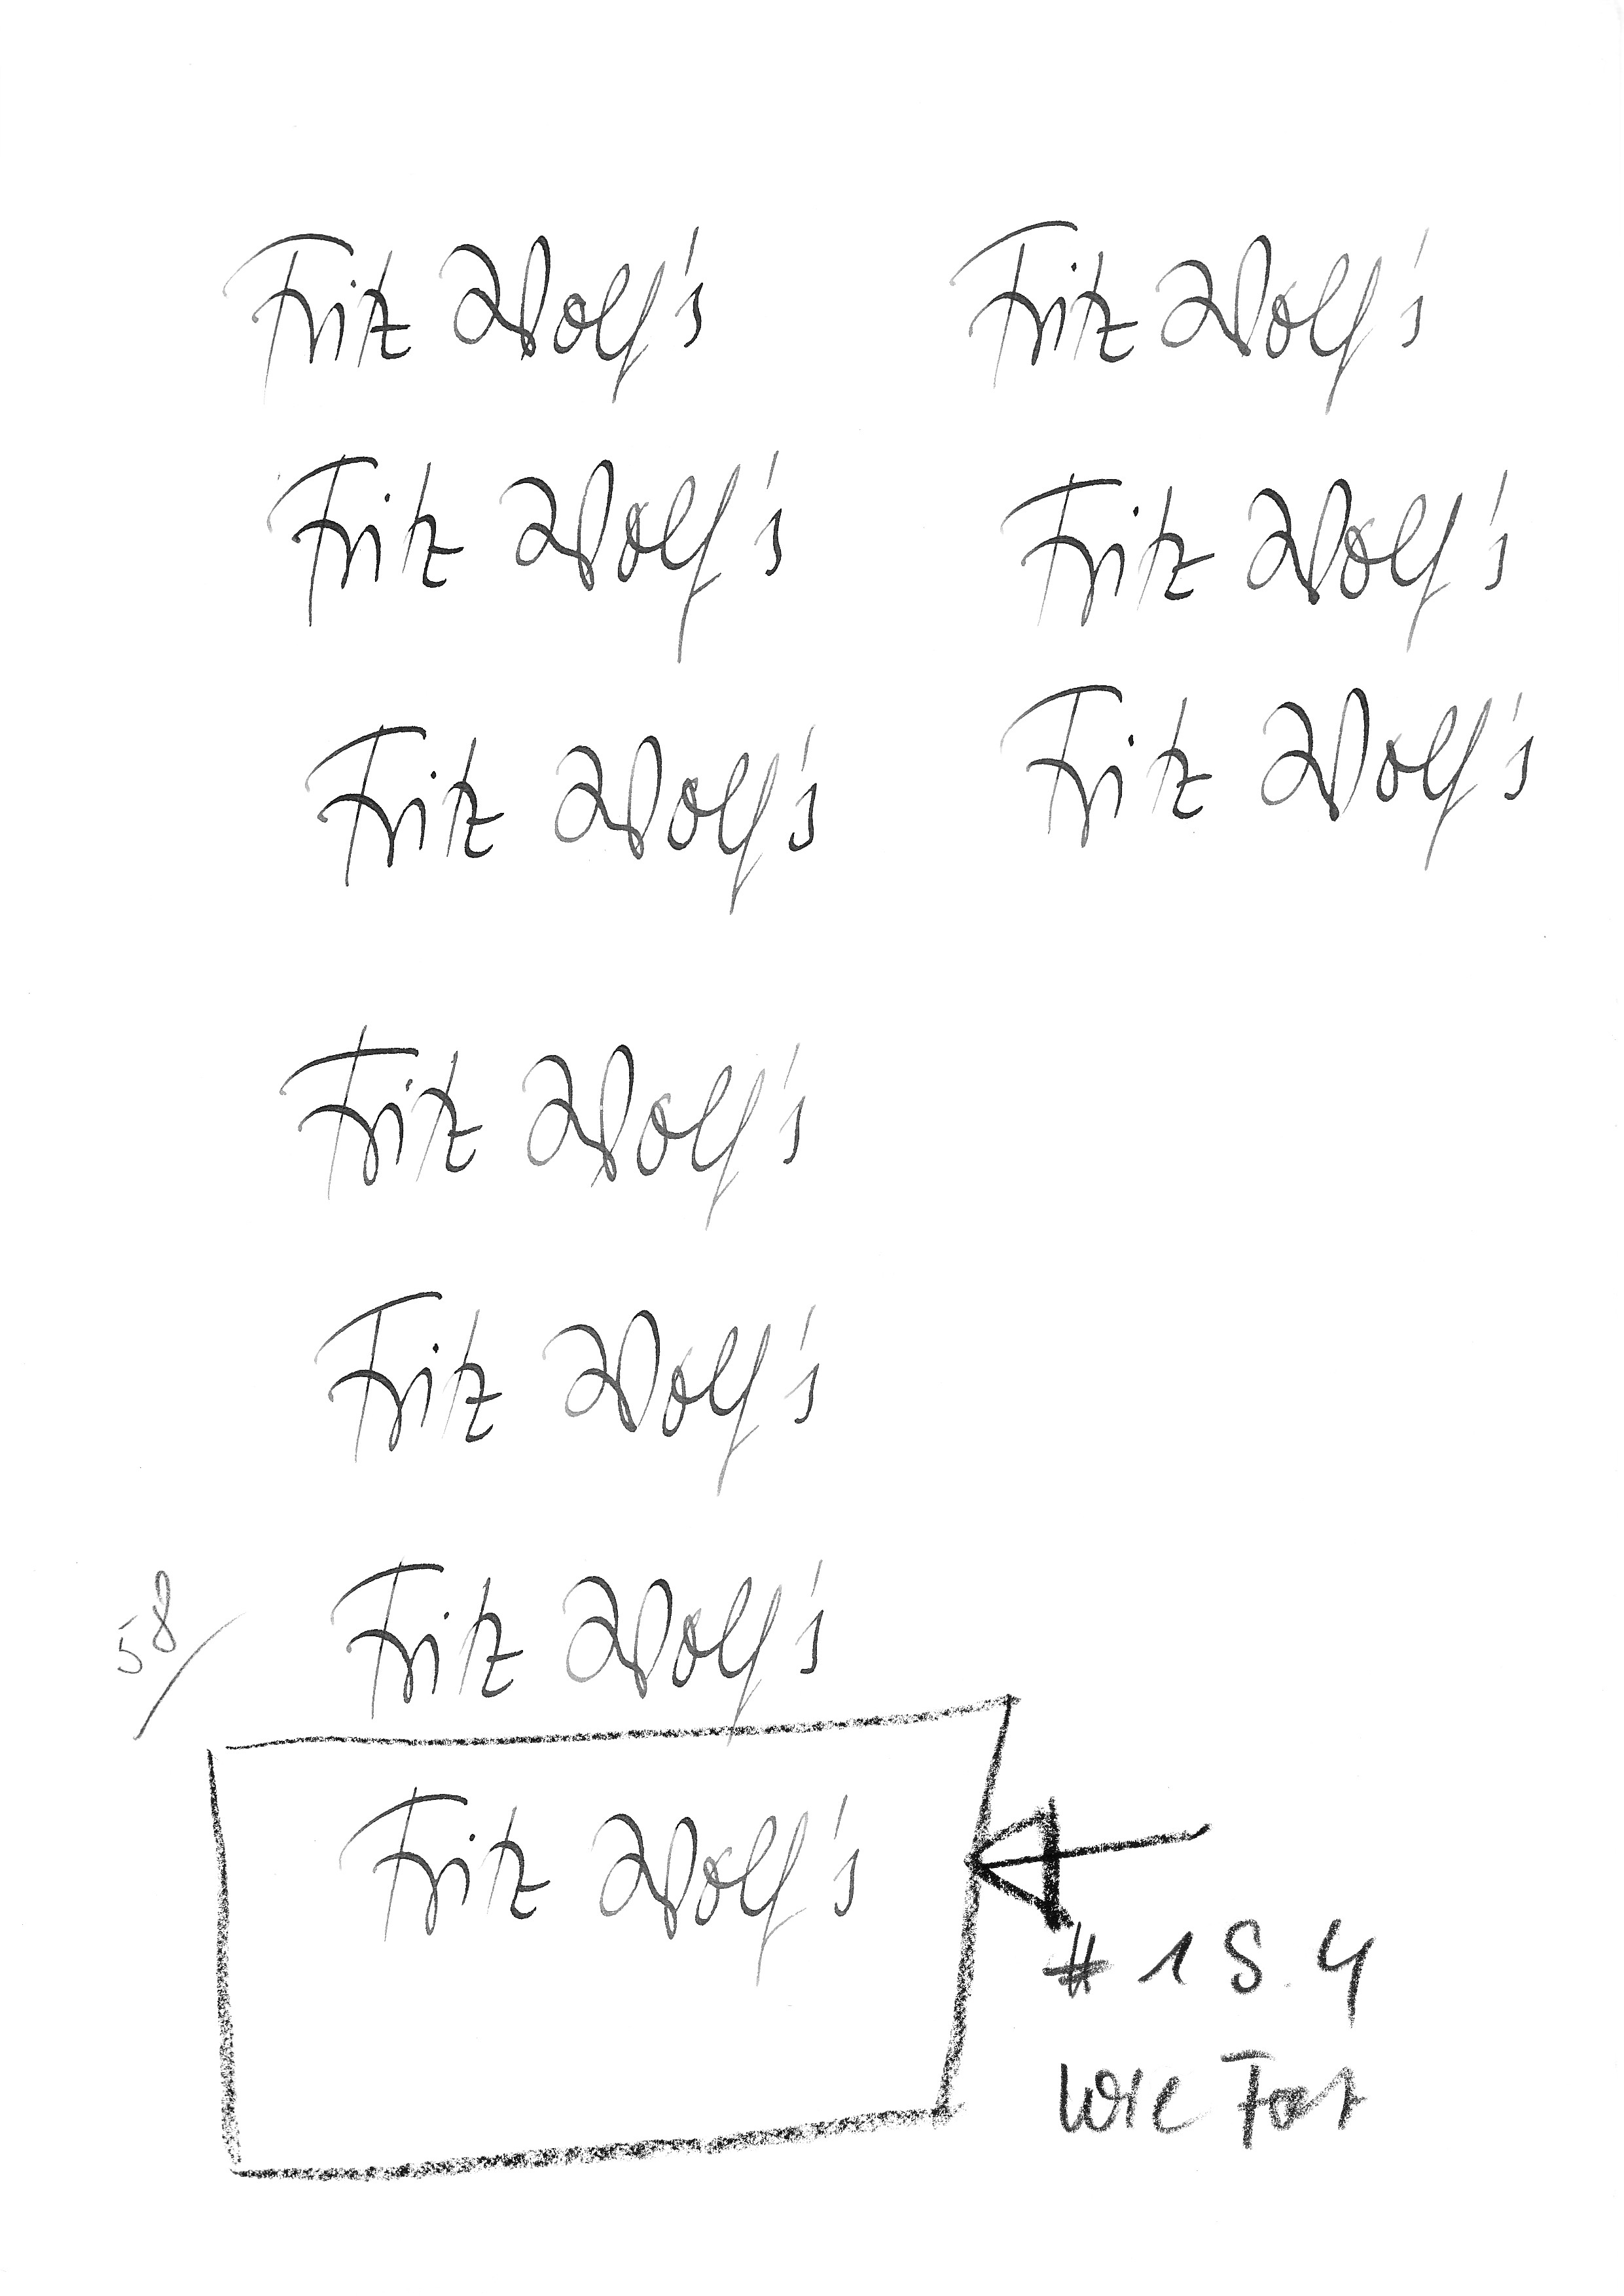 Fritz Wolf's
Fritz Wolf's
Fritz Wolf's
Fritz Wolf's
Fritz Wolf's
Fritz Wolf's
Fritz Wolf's
Fritz Wolf's
Fritz Wolf's
58/
Fritz Wolf's
# 1 S. 4
wie